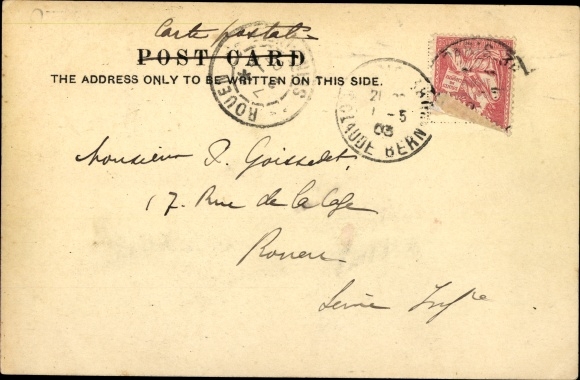 Carte postale
POST CARD
THE ADDRESS ONLY TO BE WRITTEN ON THIS SIDE.
ROUEN
21
1-5
03
CLAUDE BERN
Monsieur
17. Rue de la Cage
Rouen
Seine Infre